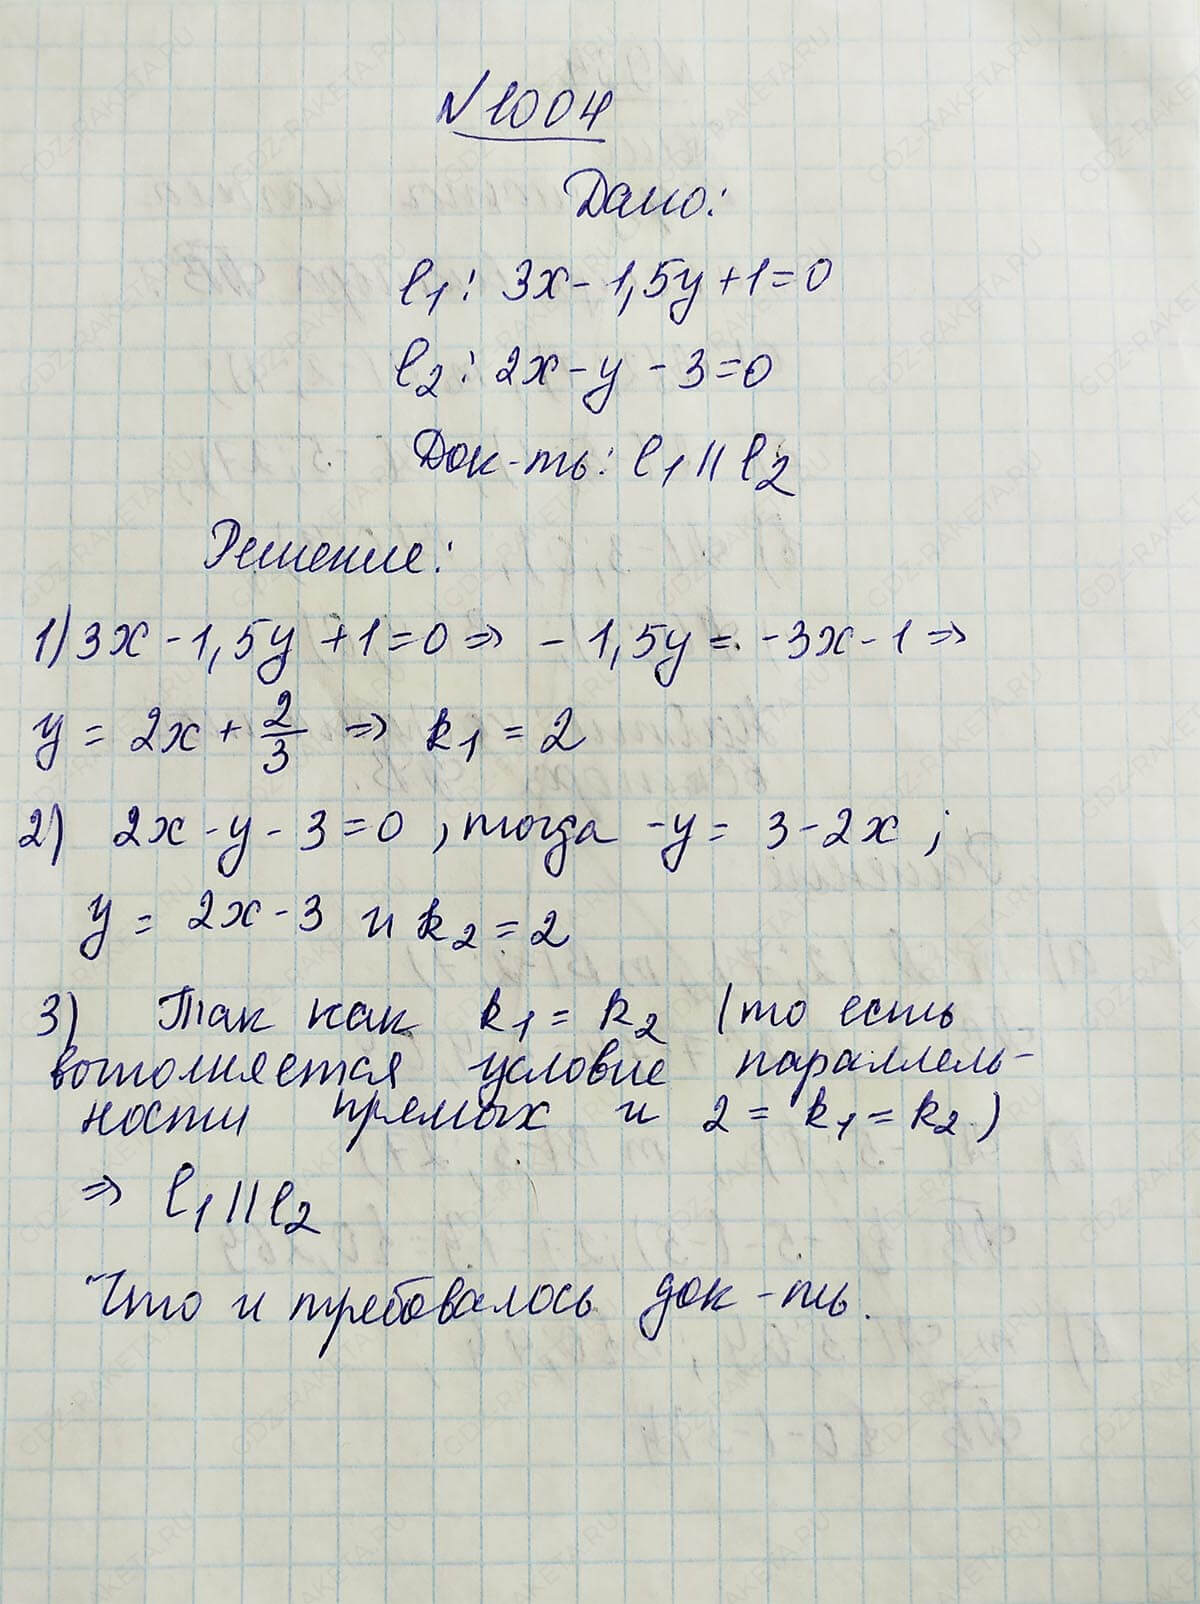 N 1004
Дано:
l₁: 3x - 1,5y + 1 = 0
l₂: 2x - y - 3 = 0
Док-ть: l₁ || l₂
Решение:
1) 3x - 1,5y + 1 = 0 ⇒ - 1,5y = -3x - 1 ⇒
y = 2x + 2/3 ⇒ k₁ = 2
2) 2x - y - 3 = 0, тогда -y = 3 - 2x ;
y = 2x - 3 и k₂ = 2
3) Так как k₁ = k₂ (то есть
выполняется условие параллель-
ности прямых и 2 = k₁ = k₂)
⇒ l₁ || l₂
Что и требовалось док-ть.
GDZ-RAKETA.RU